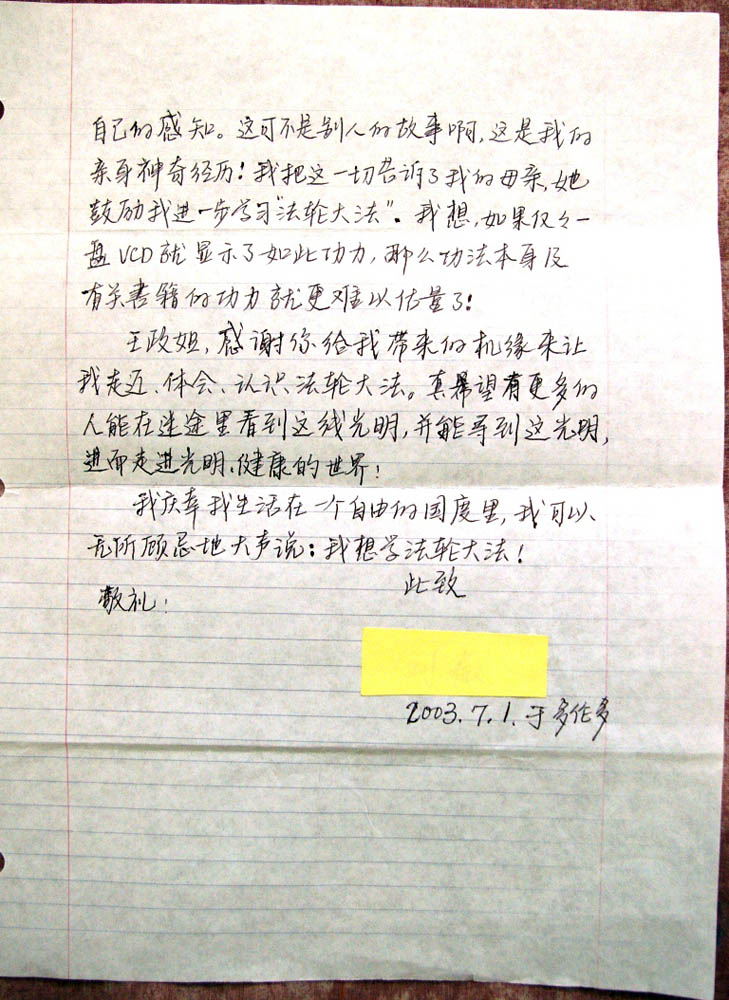 自己的感知。这可不是别人的故事啊，这是我的
亲身神奇经历！我把这一切告诉了我的母亲，她
鼓励我进一步学习“法轮大法”。我想，如果仅仅一
盘VCD就显示了如此功力，那么功法本身及
有关书籍的功力就更难以估量了！
王政姐，感谢你给我带来的机缘来让
我走近、体会、认识法轮大法。真希望有更多的
人能在迷途里看到这线光明，并能寻到这光明，
进而走进光明、健康的世界！
我庆幸我生活在一个自由的国度里，我可以
无所顾忌地大声说：我想学法轮大法！
此致
敬礼！
2003.7.1.于多伦多